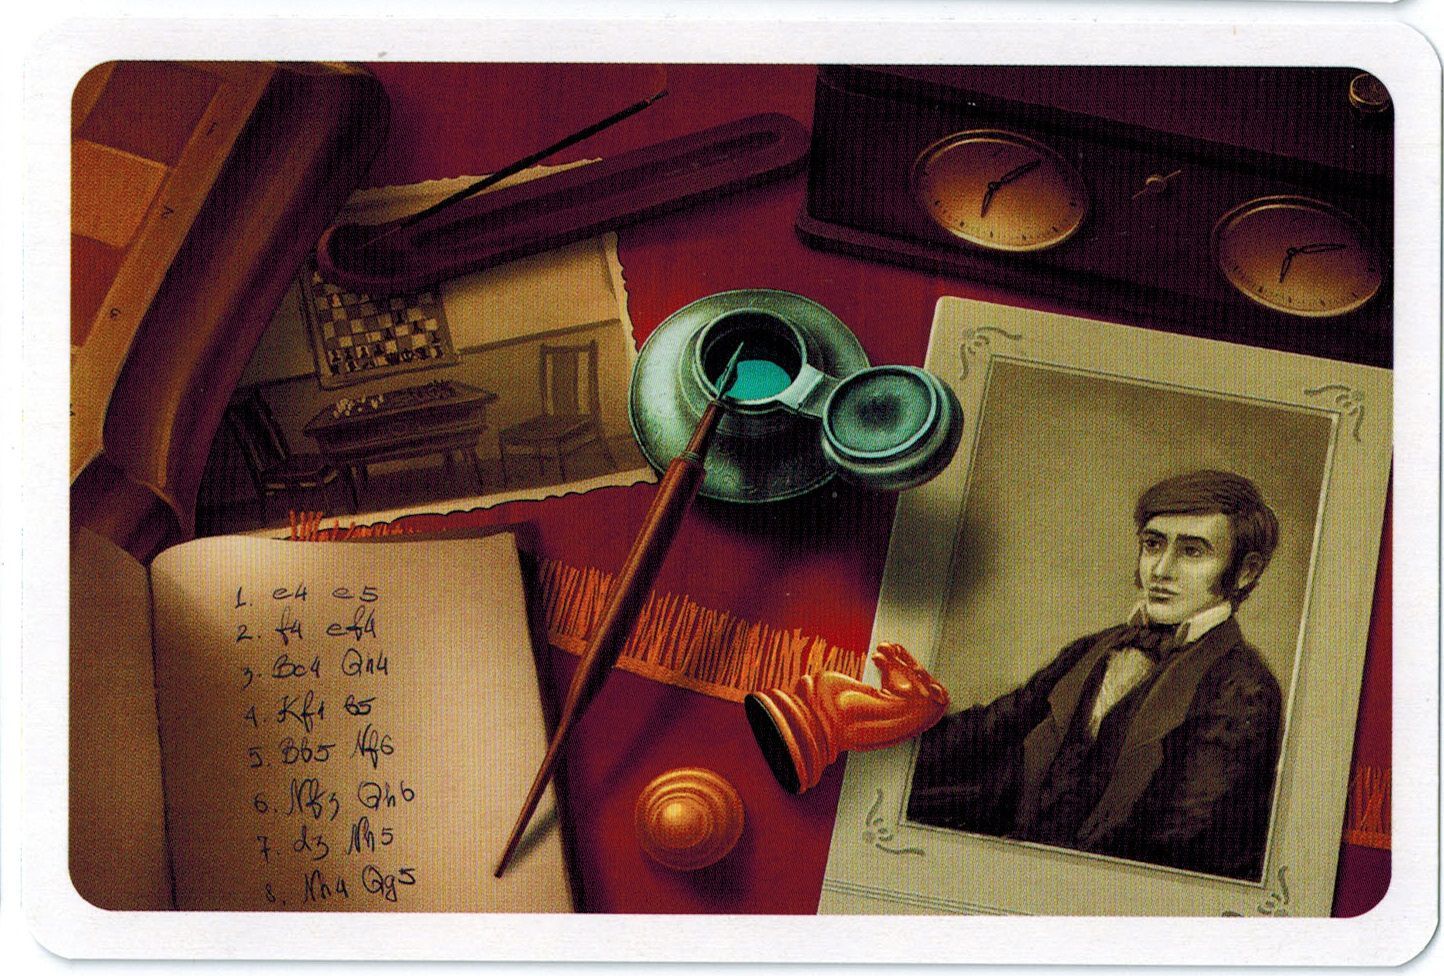 1. e4 e5
2. f4 ef4
3. Bc4 Qh4
4. Kf1 b5
5. Bb5 Nf6
6. Nf3 Qh6
7. d3 Nh5
8. Nh4 Qg5